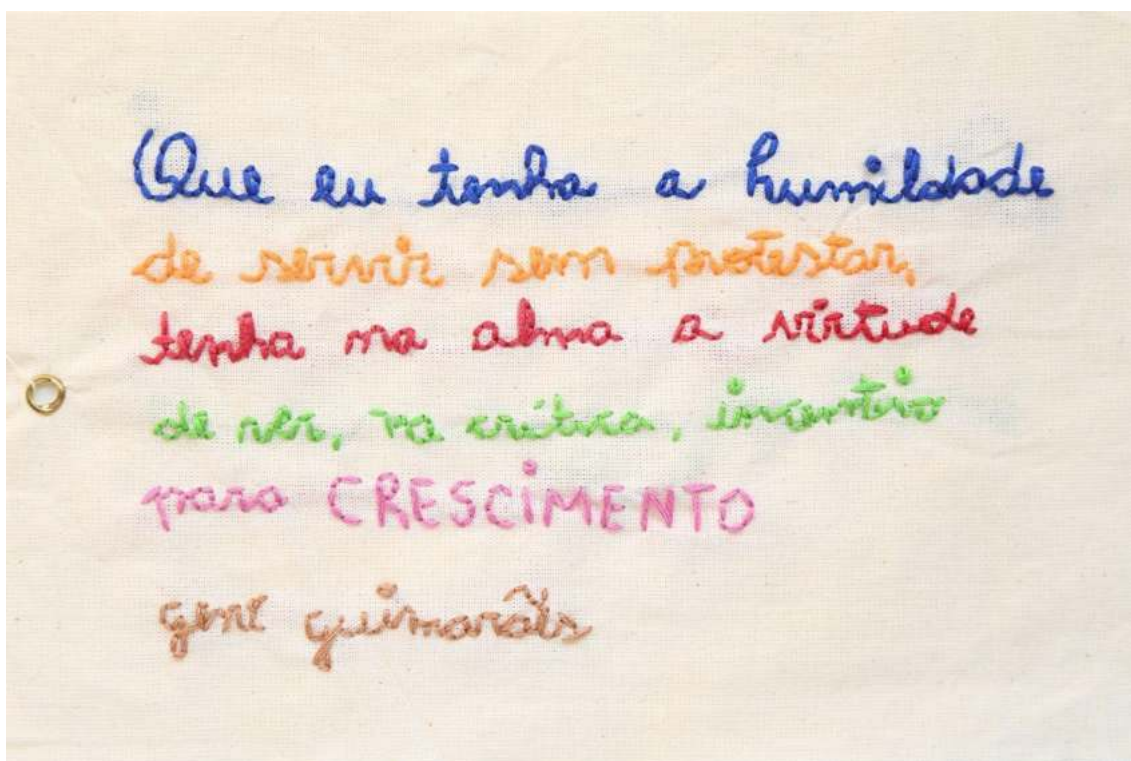 Que eu tenha a humildade
de servir sem protestar,
tenha na alma a virtude
de ver, na crítica, incentivo
para CRESCIMENTO
gene guimarães